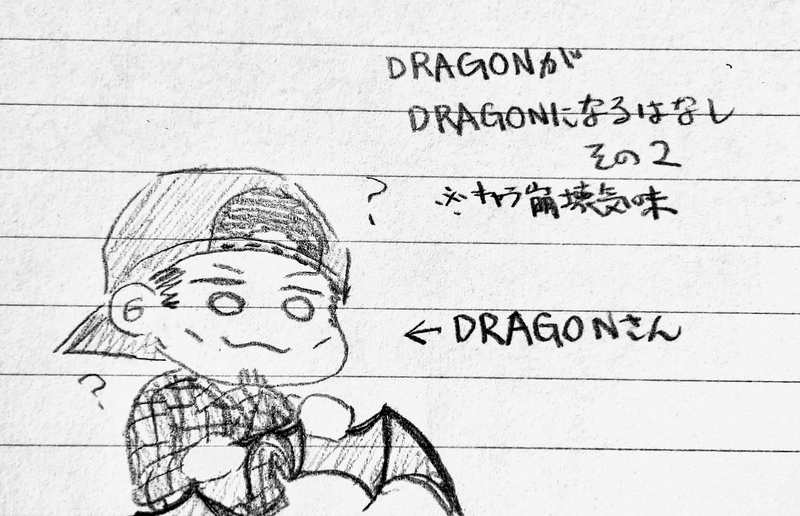 DRAGONが
DRAGONになるはなし
その2
※キャラ崩壊気味
?
←DRAGONさん
?